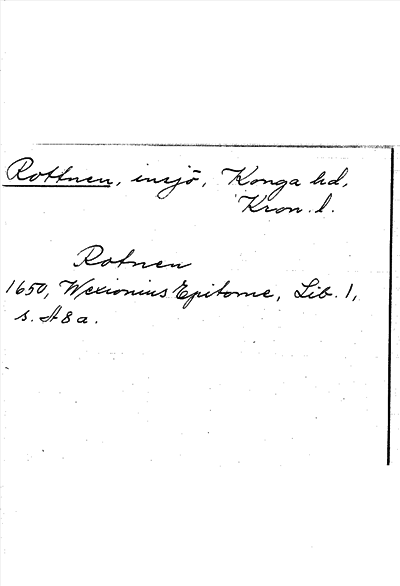 Rottnen, insjö, Konga hd,
Kron. l.
Rotnen
1650, Wexionius Epitome, Lib. 1,
s. A 8 a.